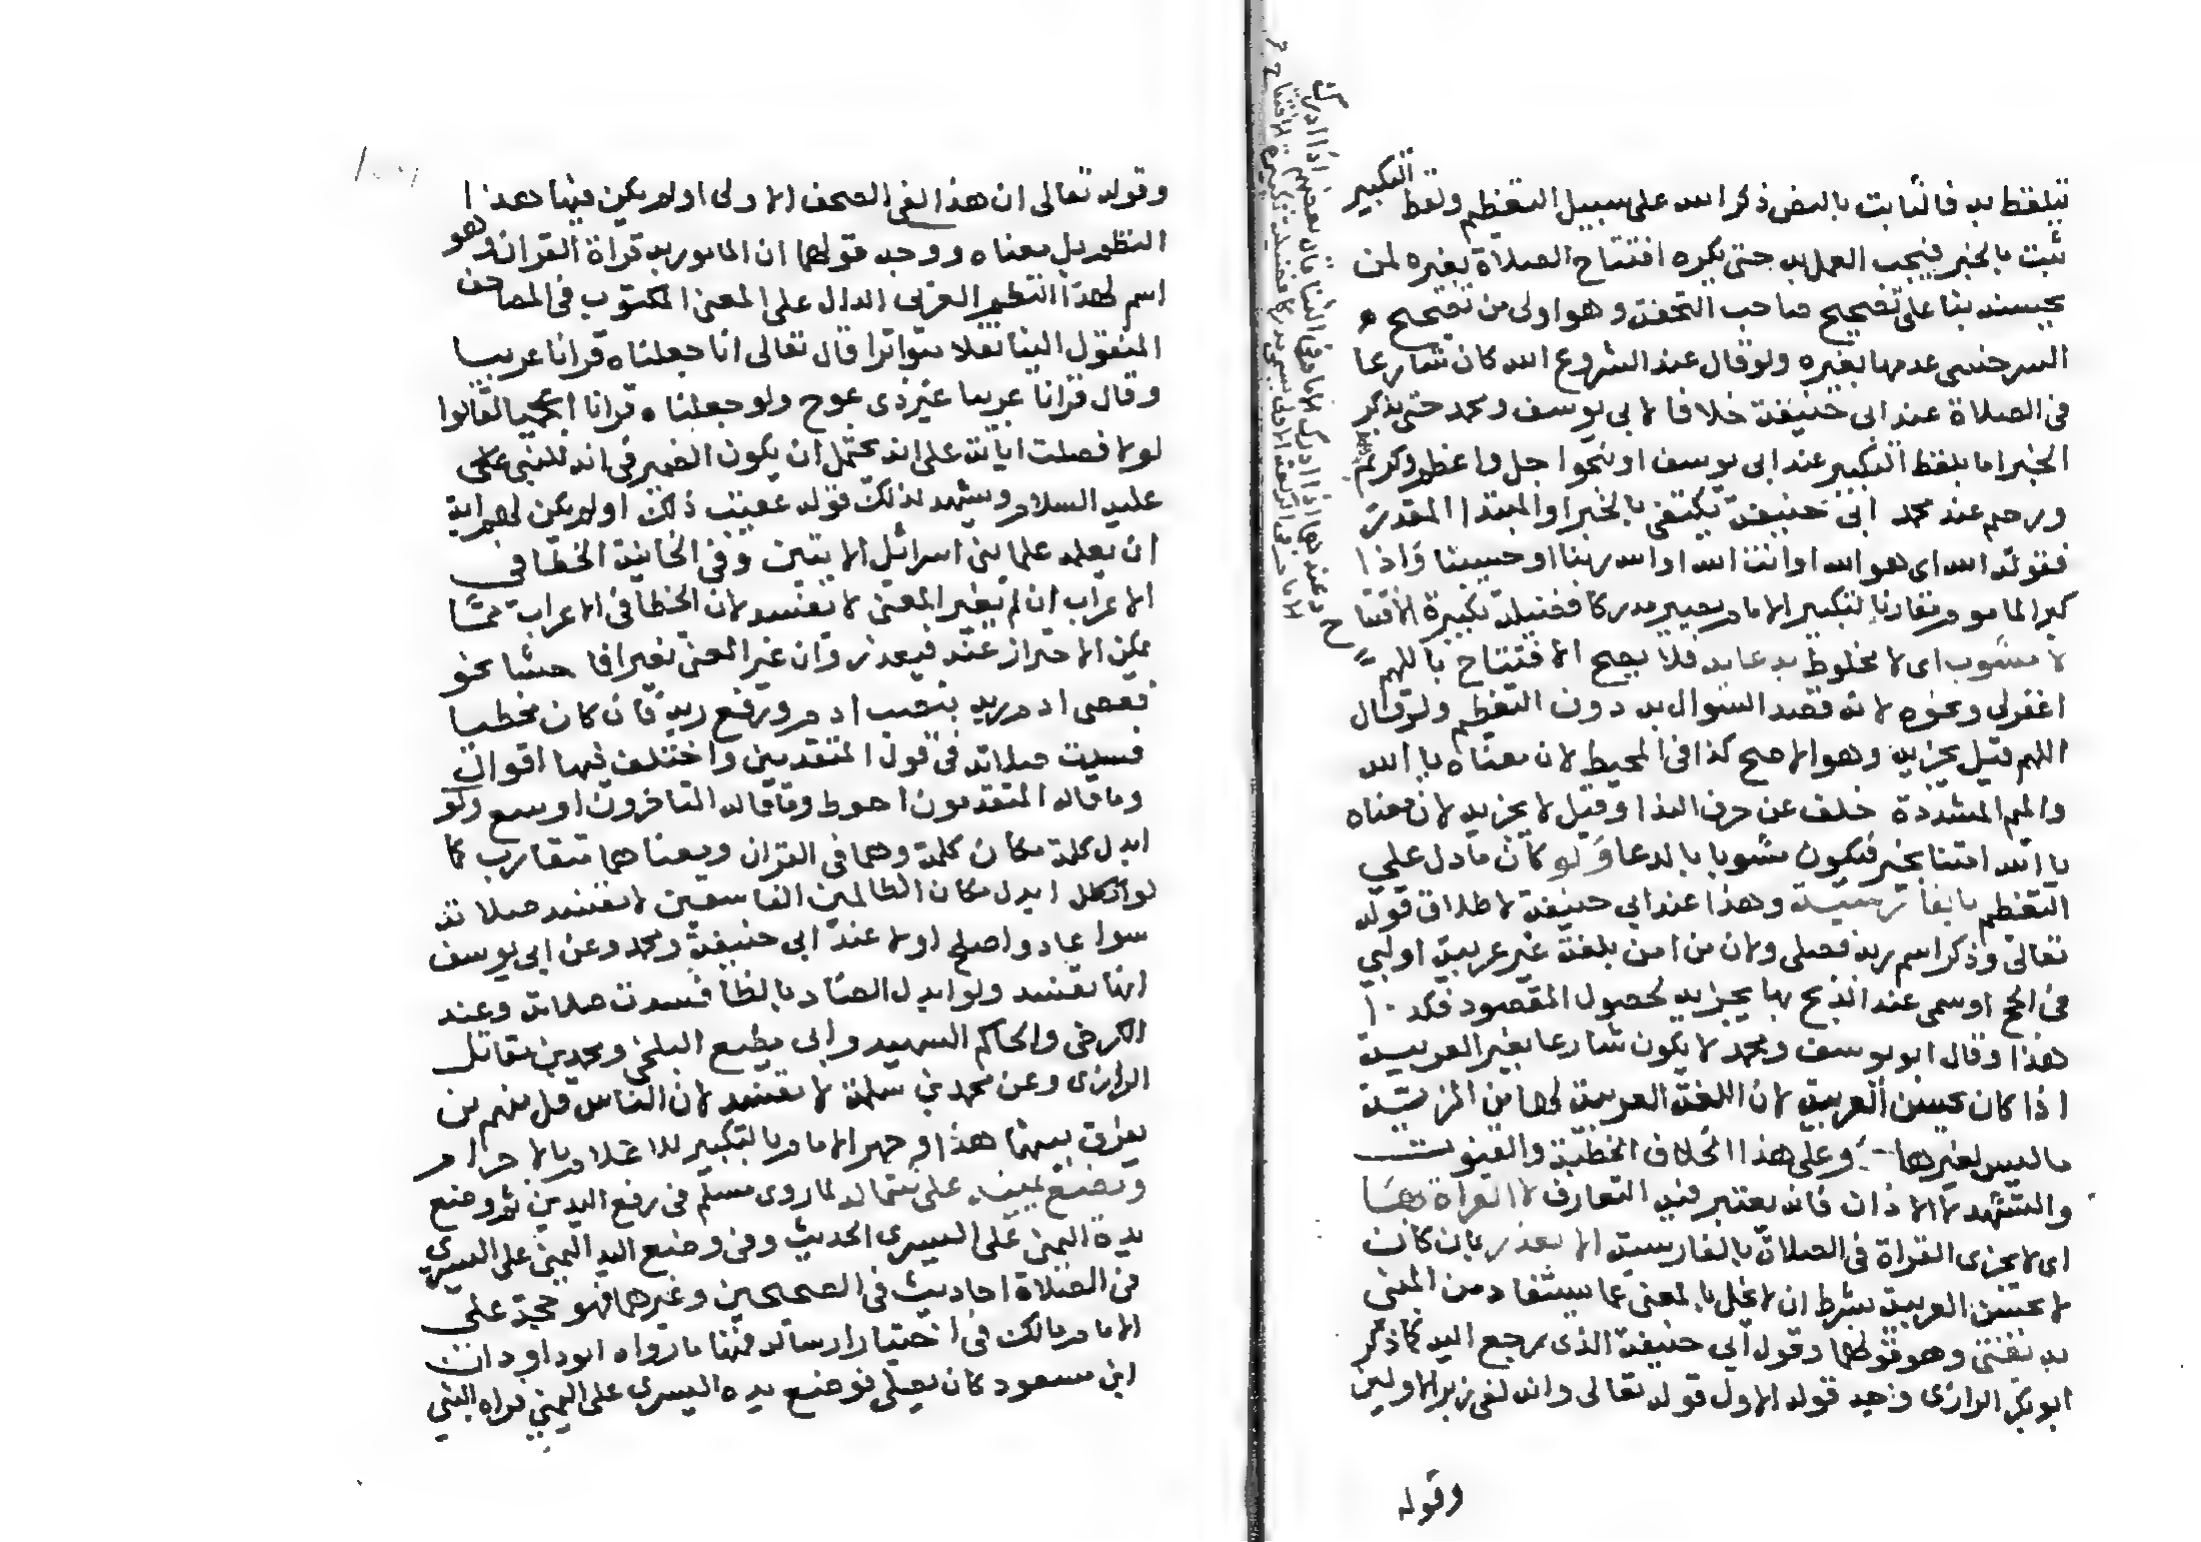 يتلفظ به فالثابت بالنص ذكر الله على سبيل التعظيم ولفظ التكبير
ثبت بالخبر فيجب العمل به حتى يكره افتتاح الصلاة بغيره لمن
يحسنه بنا على تصحيح صاحب التحفة وهو اولى من تصحيح
السرخسي عدمها بغيره ولو قال عند الشروع الله كان شارعا
في الصلاة عند ابى حنيفة خلافا لابى يوسف ومحمد حتى يذكر
الخبر اما بلفظ التكبير عند ابى يوسف او بنحو اجل واعظم وكريم
ورحيم عند محمد ابى حنيفة يكتفى بالخبر او المبتدا المقدر
فقوله الله اى هو الله او انت الله او الله ربنا او حسبنا واذا
كبر الماموم مقارنا لتكبير الامام يصير مدركا فضيلة تكبيرة الافتتا
ح
لا مشوب اى لا مخلوط بدعا به فلا يصح الافتتاح باللهم
اغفرلى ونحوه لانه قصد السوال به دون التعظيم ولو قال
اللهم قيل يجزيه وهو الاصح كذا فى المحيط لان معناه يا الله
والميم المشددة خلف عن حرف الندا وقيل لا يجزيه لان معناه
يا الله امنا بخير فيكون مشوبا بالدعا ولو كان ما دل على
التعظيم بالفارسية وهذا عند ابى حنيفة لاطلاق قوله
تعالى وذكر اسم ربه فصلى ولان من امن بلغة غير عربية او لبى
فى الحج او سمى عند الذبح بها يجزيه لحصول المقصود فكذا
هذا وقال ابو يوسف ومحمد لا يكون شارعا بغير العربية
اذا كان يحسن العربية لان اللغة العربية لها من المزية
ما ليس لغيرها وعلى هذا الخلاف الخطبة والقنوت
والتشهد لا الاذان فانه يعتبر فيه التعارف لا القراة بها
اى لا يجزى القراة فى الصلاة بالفارسية الا بعذر بان كان
لا يحسن العربية بشرط ان لا يخل بالمعنى عما يستفاد من المبنى
به نفتى وهو قولهما وقول ابى حنيفة الذى رجع اليه كما ذكر
ابو بكر الرازى وجه قوله الاول قوله تعالى وانه لفى زبر الاولين
وقوله
وقوله تعالى ان هذا لفى الصحف الاولى اولم يكن فيها هذا
النظم بل معناه ووجه قولهما ان المامور به قراة القران وهو
اسم لهذا النظم العربى الدال على المعنى المكتوب فى المصاحف
المنقول الينا نقلا متواترا قال تعالى انا جعلناه قرانا عربيا
وقال قرانا عربيا غير ذى عوج ولو جعلناه قرانا اعجميا لقالوا
لولا فصلت اياته على انه يحتمل ان يكون الضمير فى انه للنبى
عليه السلام ويشهد لذلك قوله عقيب ذلك اولم يكن لهم اية
ان يعلمه علما بنى اسرائل الايتين وفى الخانية الخطا فى
الاعراب ان لم يغير المعنى لا تفسد لان الخطا فى الاعراب مما
يمكن الاحتراز عنه فيعذر وان غير المعنى تغيرا فاحشا نحو
فعصى ادم ربه بنصب ادم ورفع ربه فان كان مخطيا
فسدت صلاته فى قول المتقدمين واختلف فيها اقوال
وما قاله المتقدمون احوط وما قاله المتاخرون اوسع ولو
ابدل كلمة مكان كلمة وهما فى القران ومعناهما متقارب كما
لو ابدل مكان الظالمين الفاسقين لا تفسد صلاته
سوا عاد واصلح اولا عند ابى حنيفة ومحمد وعن ابى يوسف
انها تفسد ولو ابدل الضاد بالظا فسدت صلاته وعند
الكرخى والحاكم الشهيد وابى مطيع البلخى ومحمد بن مقاتل
الرازى وعن محمد بن سلمة لا تفسد لان الناس قل منهم من
يفرق بينهما هذا وجهر الامام بالتكبير للاعلام بالاحرام
ويضع يمينه على شماله لما روى مسلم فى رفع اليدين ثم وضع
يده اليمنى على اليسرى الحديث وفى وضع اليد اليمنى على اليسرى
فى الصلاة احاديث فى الصحيحين وغيرهما فهو حجة على
الامام مالك فى اختيار ارساله فمنها ما رواه ابو داود ان
ابن مسعود كان يصلى فوضع يده اليسرى على اليمنى فراه النبى